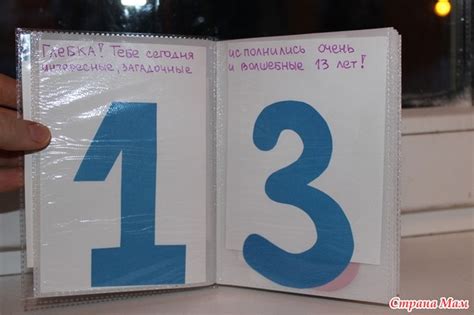 Глебка! Тебе сегодня исполнились очень
интересные, загадочные и волшебные 13 лет!
13
Страна Мам